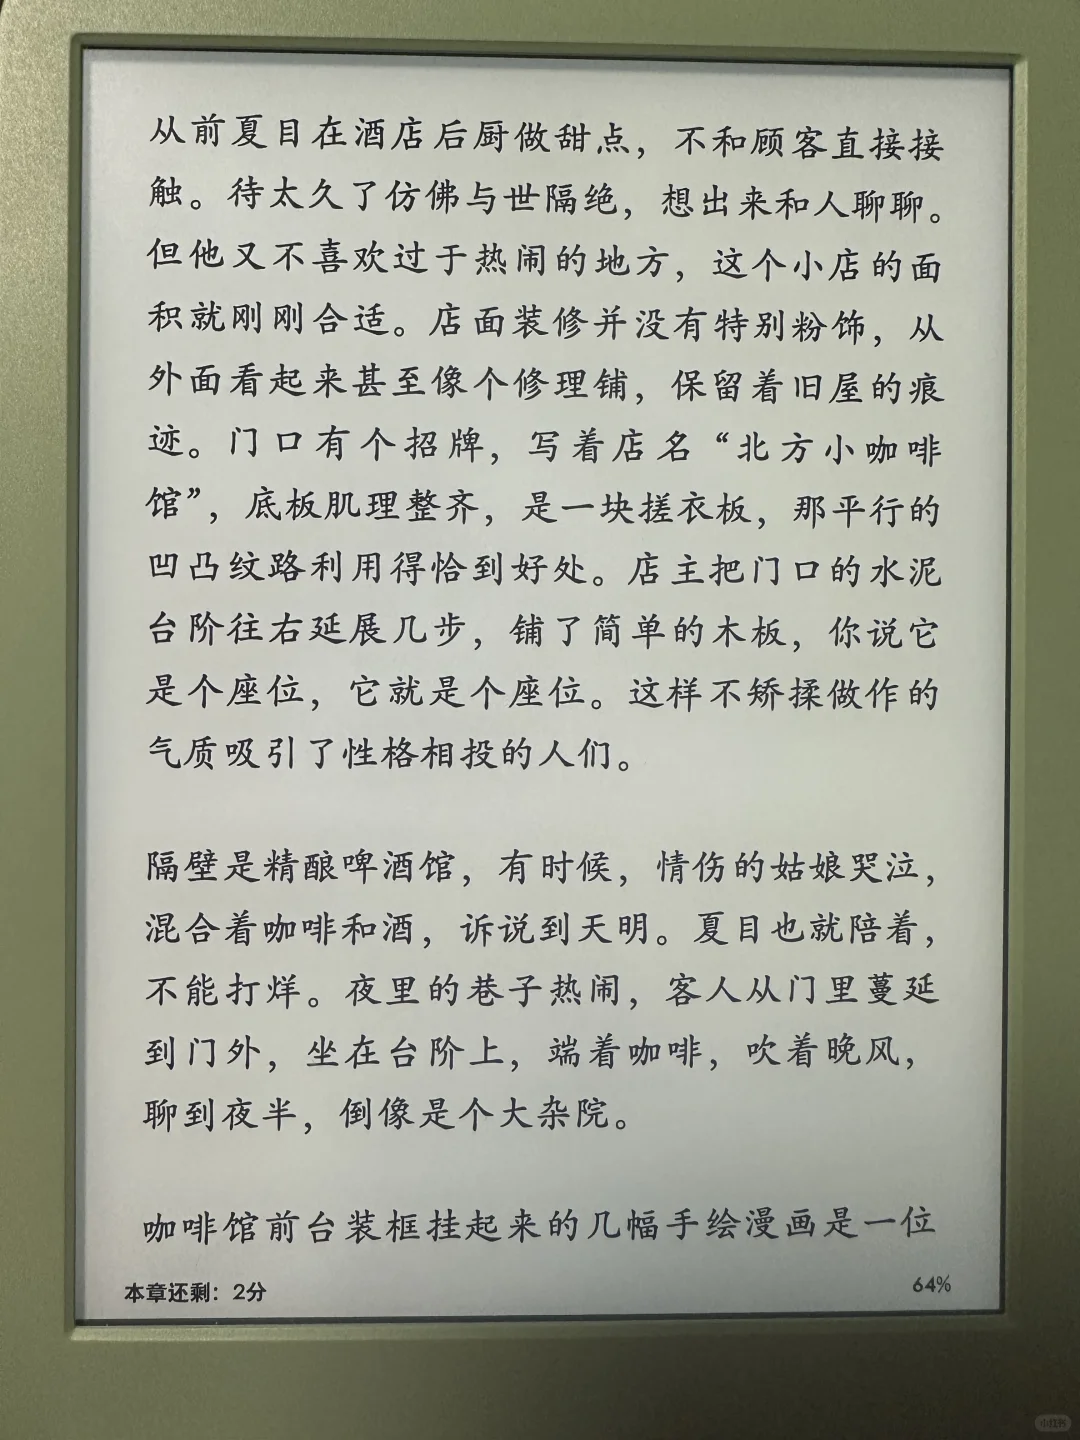 从前夏目在酒店后厨做甜点，不和顾客直接接
触。待太久了仿佛与世隔绝，想出来和人聊聊。
但他又不喜欢过于热闹的地方，这个小店的面
积就刚刚合适。店面装修并没有特别粉饰，从
外面看起来甚至像个修理铺，保留着旧屋的痕
迹。门口有个招牌，写着店名“北方小咖啡
馆”，底板肌理整齐，是一块搓衣板，那平行的
凹凸纹路利用得恰到好处。店主把门口的水泥
台阶往右延展几步，铺了简单的木板，你说它
是个座位，它就是个座位。这样不矫揉做作的
气质吸引了性格相投的人们。
隔壁是精酿啤酒馆，有时候，情伤的姑娘哭泣，
混合着咖啡和酒，诉说到天明。夏目也就陪着，
不能打烊。夜里的巷子热闹，客人从门里蔓延
到门外，坐在台阶上，端着咖啡，吹着晚风，
聊到夜半，倒像是个大杂院。
咖啡馆前台装框挂起来的几幅手绘漫画是一位
本章还剩：2分
64%
小红书